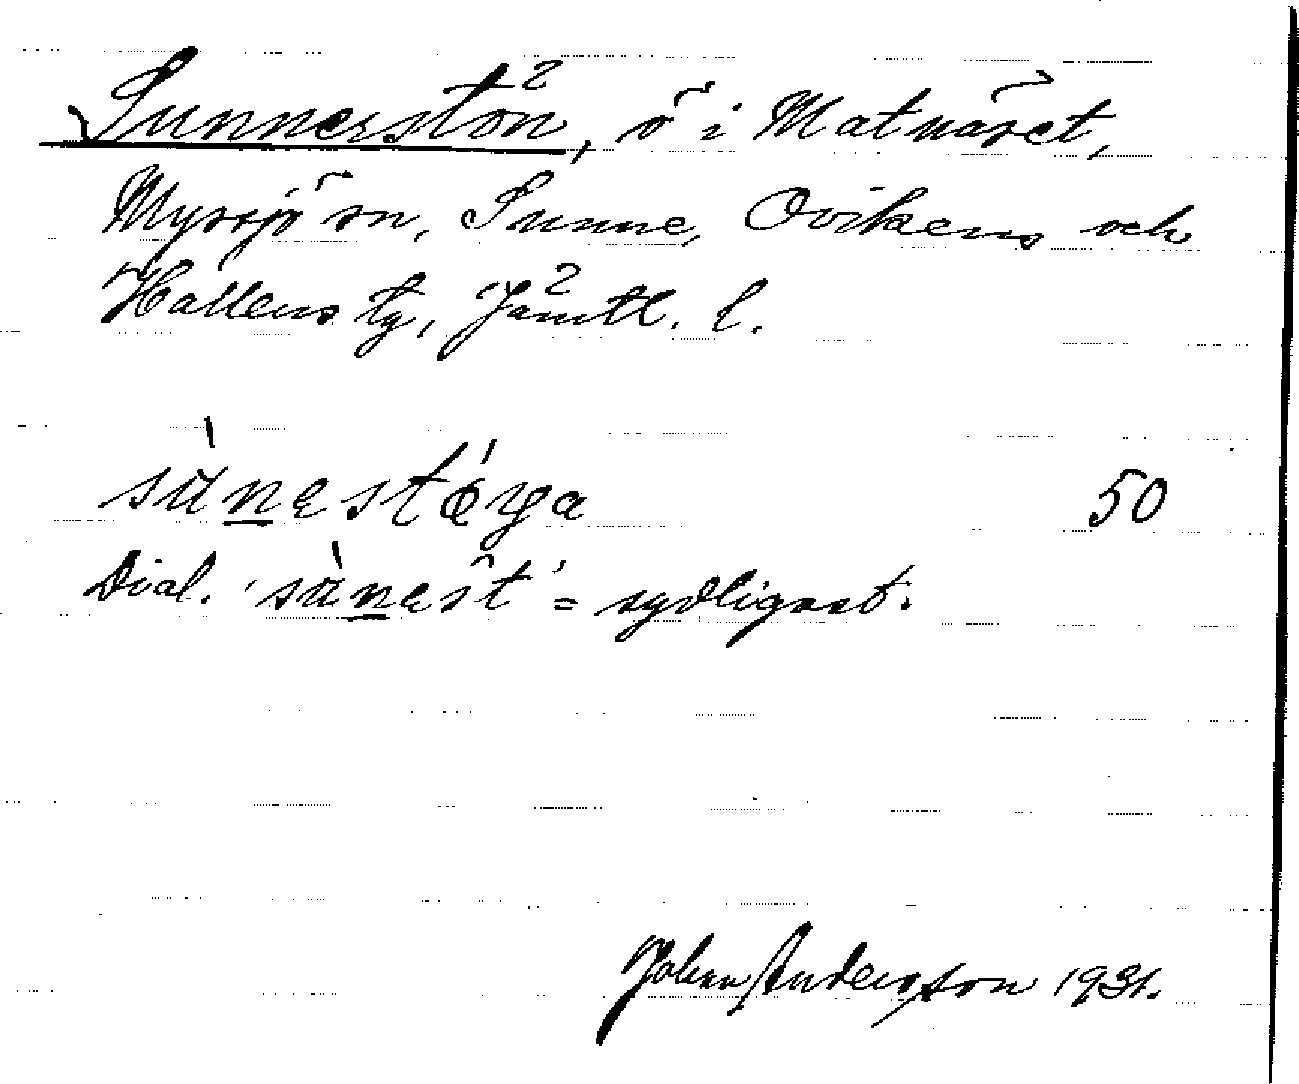 Sunnerstön, ö i Matnäset,
Myssjö sn, Sunne, Ovikens och
Hallens tg, Jämtl. l.
sànestǿya 50
Dial. 'sànest' = sydligast.
Johan Andersson 1931.